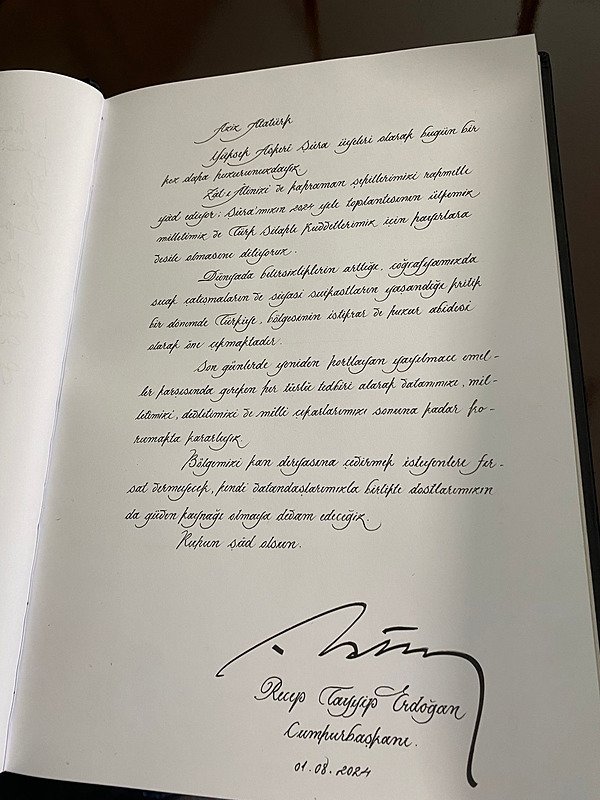 Aziz Atatürk
Yüksek Askeri Şûra üyeleri olarak bugün bir
kez daha huzurunuzdayız.
Zât-ı Âlinizi ve kahraman şehitlerimizi rahmetle
yâd ediyor; Şûra'mızın 2024 yılı toplantısının ülkemiz
milletimiz ve Türk Silahlı Kuvvetlerimiz için hayırlara
vesile olmasını diliyoruz.
Dünyada belirsizliklerin arttığı, coğrafyamızda
sıcak çatışmaların ve siyasi suikastların yaşandığı kritik
bir dönemde Türkiye, bölgesinin istikrar ve huzur abidesi
olarak öne çıkmaktadır.
Son günlerde yeniden hortlayan yayılmacı emel-
ler karşısında gereken her türlü tedbiri alarak vatanımızı, mil-
letimizi, devletimizi ve milli çıkarlarımızı sonuna kadar ko-
rumakta kararlıyız.
Bölgemizi kan deryasına çevirmek isteyenlere fır-
sat vermeyecek, kendi vatandaşlarımızla birlikte dostlarımızın
da güven kaynağı olmaya devam edeceğiz.
Ruhun şâd olsun.
Recep Tayyip Erdoğan
Cumhurbaşkanı
01.08.2024